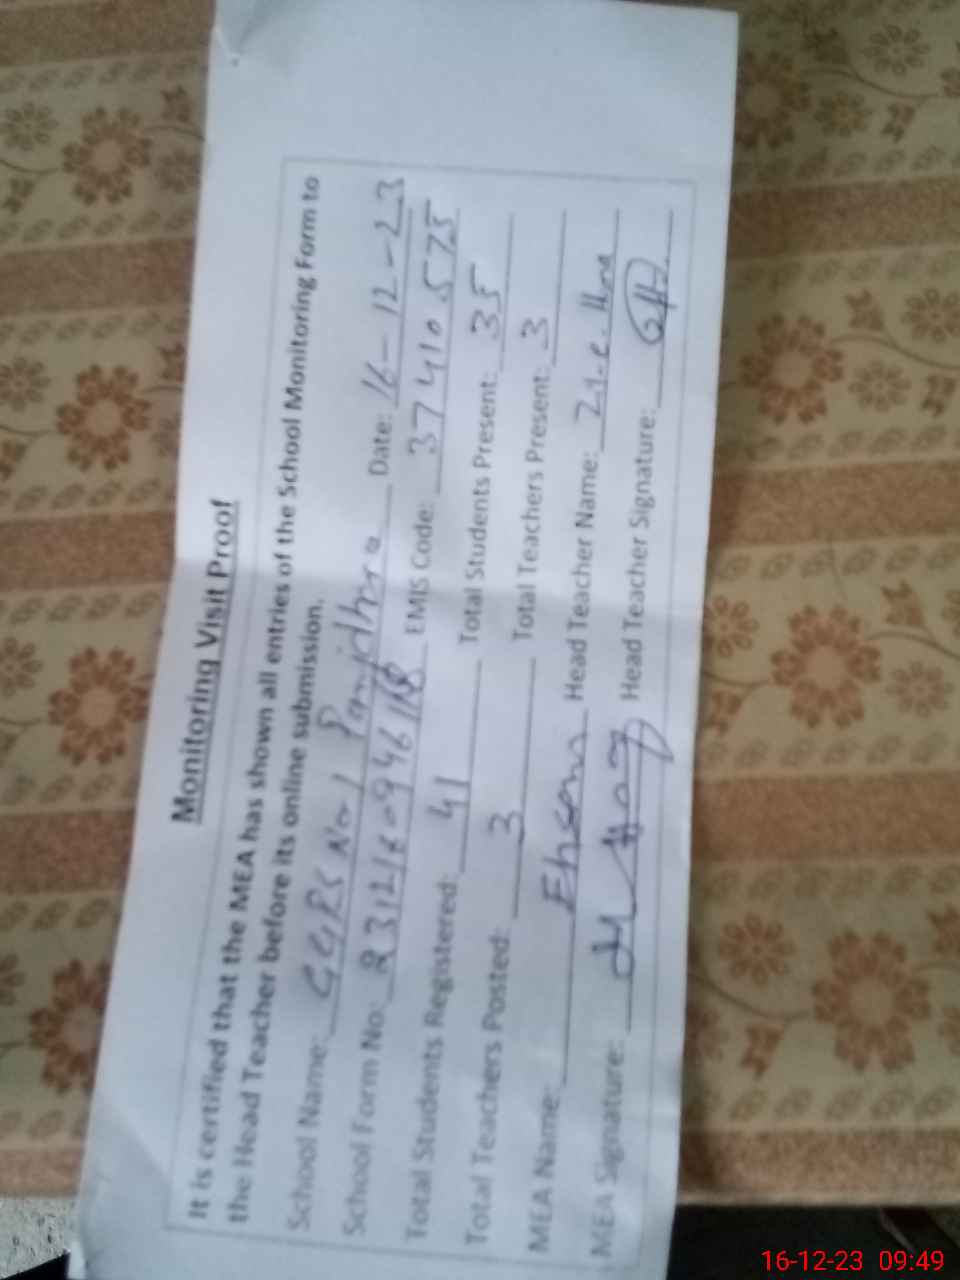 Monitoring Visit Proof
It is certified that the MEA has shown all entries of the School Monitoring Form to
the Head Teacher before its online submission.
School Name: GGPS No 1 Date: 16-12-23
School Form No: EMIS Code: 37410575
Total Students Registered: 41 Total Students Present: 35
Total Teachers Posted: 3 Total Teachers Present: 3
MEA Name: Ehsan Head Teacher Name:
MEA Signature: Head Teacher Signature:
16-12-23 09:49